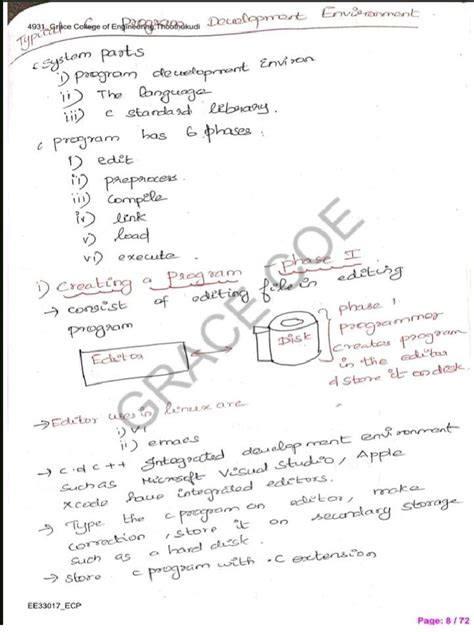 4931_Grace College of Engineering,Thoothukudi
Typical C Program Development Environment
C system parts
i) program development Environ
ii) The Language
iii) C standard library.
C program has 6 phases:
i) edit
ii) preprocess
iii) compile
iv) link
v) load
vi) execute.
i) Creating a program - phase I
→ consist of editing file in editing
program
Editor
Disk
phase 1
programmer
creates program
in the editor
& store it on disk.
→ Editor uses in linux are
i) vi
ii) emacs
→ C & C++ Integrated development environment
such as Microsoft Visual Studio, Apple
Xcode have integrated editors.
→ Type the c program on editor, make
correction, store it on secondary storage
such as a hard disk.
→ store c program with .C extension
GRACE COE
EE33017_ECP
Page: 8 / 72